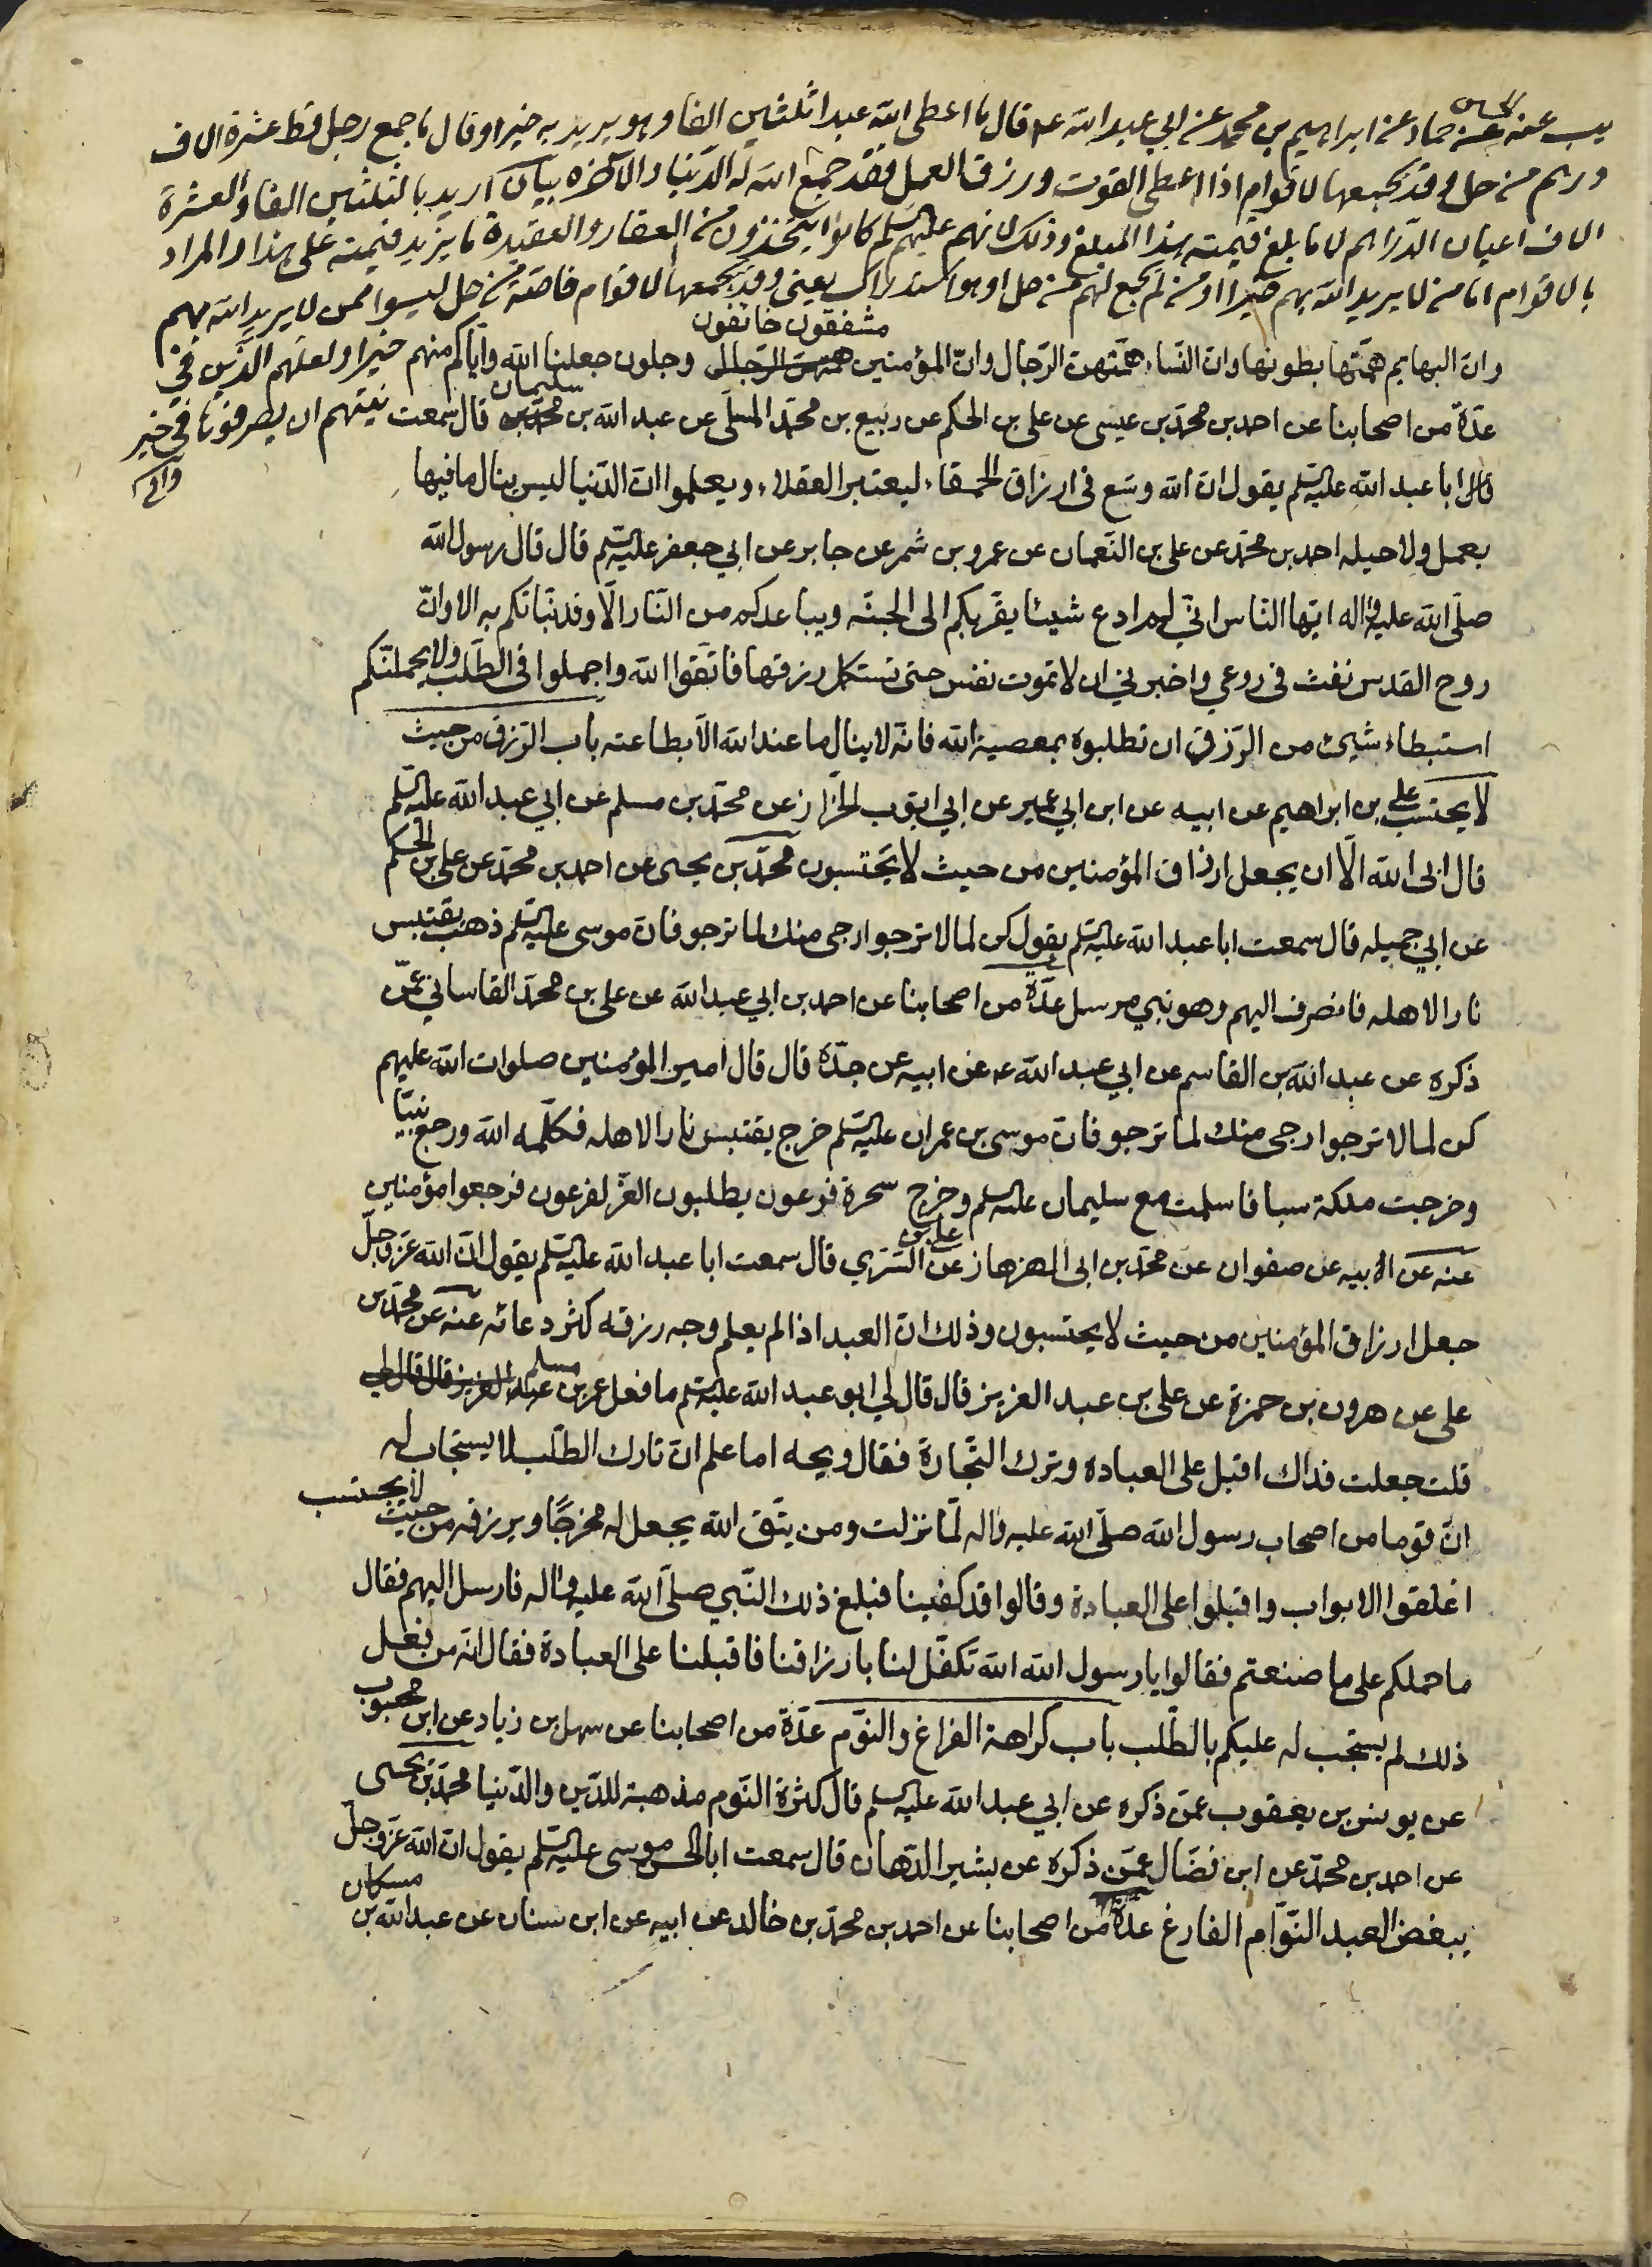 يب عنه عن الحسن حماد عن ابراهيم بن محمد عن ابي عبد الله عم قال ما اعطى الله عبدا ثلثين الفا وهو يريد به خيرا وقال ما جمع رجل قط عشرة الاف
درهم من حل وقد يجمعها لاقوام اذا اعطى القوت ورزق العمل فقد جمع الله له الدنيا والاخرة بيان اريد بالثلثين الفا والعشرة
الاف اعيان الدراهم لا ما بلغ قيمته هذا المبلغ وذلك لانهم عليهم السلم كانوا يتخذون من العقار والعقيدة ما يزيد قيمته على هذا والمراد
بالاقوام اما من لا يريد الله بهم خيرا او من لم يجمع لهم من حل او هو استدراك يعني وقد يجمعها لاقوام خاصة من حل ليسوا ممن لا يريد الله بهم
خيرا ولعلهم الذين في
نيتهم ان يصرفوها في خير
وان البهايم همتها بطونها وان النساء همتهن الرجال وان المؤمنين مشفقون خائفون وجلون جعلنا الله واياكم منهم
عدة من اصحابنا عن احمد بن محمد بن عيسى عن علي بن الحكم عن ربيع بن محمد المسلي عن عبد الله بن سليمان قال سمعت
ابا عبد الله عليه السلم يقول ان الله وسع في ارزاق الحمقاء ليعتبر العقلاء ويعلموا ان الدنيا ليس ينال ما فيها
بعمل ولا حيله احمد بن محمد عن علي بن النعمان عن عمرو بن شمر عن جابر عن ابي جعفر عليه السلم قال قال رسول الله
صلى الله عليه واله ايها الناس اني لم ادع شيئا يقربكم الى الجنة ويباعدكم من النار الا وقد نبأتكم به الا وان
روح القدس نفث في روعي واخبرني ان لا تموت نفس حتى تستكمل رزقها فاتقوا الله واجملوا في الطلب ولا يحملنكم
استبطاء شيئ من الرزق ان تطلبوه بمعصية الله فانه لا ينال ما عند الله الا بطاعته باب الرزق من حيث
لا يحتسب علي بن ابراهيم عن ابيه عن ابن ابي عمير عن ابي ايوب الخزاز عن محمد بن مسلم عن ابي عبد الله عليه السلم
قال ابى الله الا ان يجعل ارزاق المؤمنين من حيث لا يحتسبون محمد بن يحيى عن احمد بن محمد عن علي بن الحكم
عن ابي جميله قال سمعت ابا عبد الله عليه السلم يقول كن لما لا ترجوا ارجى منك لما ترجو فان موسى عليه السلم ذهب يقتبس
نارا لاهله فانصرف اليهم وهو نبي مرسل عدة من اصحابنا عن احمد بن ابي عبد الله عن علي بن محمد القاساني عمن
ذكره عن عبد الله بن القاسم عن ابي عبد الله عم عن ابيه عن جده قال قال امير المؤمنين صلوات الله عليهم
كن لما لا ترجوا ارجى منك لما ترجو فان موسى بن عمران عليه السلم خرج يقتبس نارا لاهله فكلمه الله ورجع نبيا
وخرجت ملكة سبا فاسلمت مع سليمان عليه السلم وخرج سحرة فرعون يطلبون العز لفرعون فرجعوا مؤمنين
عنه عن ابيه عن صفوان عن محمد بن ابي الهزهاز عن علي بن السري قال سمعت ابا عبد الله عليه السلم يقول ان الله عز وجل
جعل ارزاق المؤمنين من حيث لا يحتسبون وذلك ان العبد اذا لم يعلم وجه رزقه كثر دعائه عنه عن محمد بن
علي عن هرون بن حمزة عن علي بن عبد العزيز قال قال لي ابو عبد الله عليه السلم ما فعل عمر بن مسلم
قلت جعلت فداك اقبل على العبادة وترك التجارة فقال ويحه اما علم ان تارك الطلب لا يستجاب له
ان قوما من اصحاب رسول الله صلى الله عليه واله لما نزلت ومن يتق الله يجعل له مخرجا ويرزقه من حيث لا يحتسب
اغلقوا الابواب واقبلوا على العبادة وقالوا قد كفينا فبلغ ذلك النبي صلى الله عليه واله فارسل اليهم فقال
ما حملكم على ما صنعتم فقالوا يا رسول الله الله تكفل لنا بارزاقنا فاقبلنا على العبادة فقال انه من فعل
ذلك لم يستجب له عليكم بالطلب باب كراهة الفراغ والنوم عدة من اصحابنا عن سهل بن زياد عن ابن محبوب
عن يونس بن يعقوب عمن ذكره عن ابي عبد الله عليه السلم قال كثرة النوم مذهبة للدين والدنيا محمد بن يحيى
عن احمد بن محمد عن ابن فضال عمن ذكره عن بشير الدهان قال سمعت ابا الحسن موسى عليه السلم يقول ان الله عز وجل
يبغض العبد النوام الفارغ عدة من اصحابنا عن احمد بن محمد بن خالد عن ابيه عن ابن سنان عن عبد الله بن مسكان